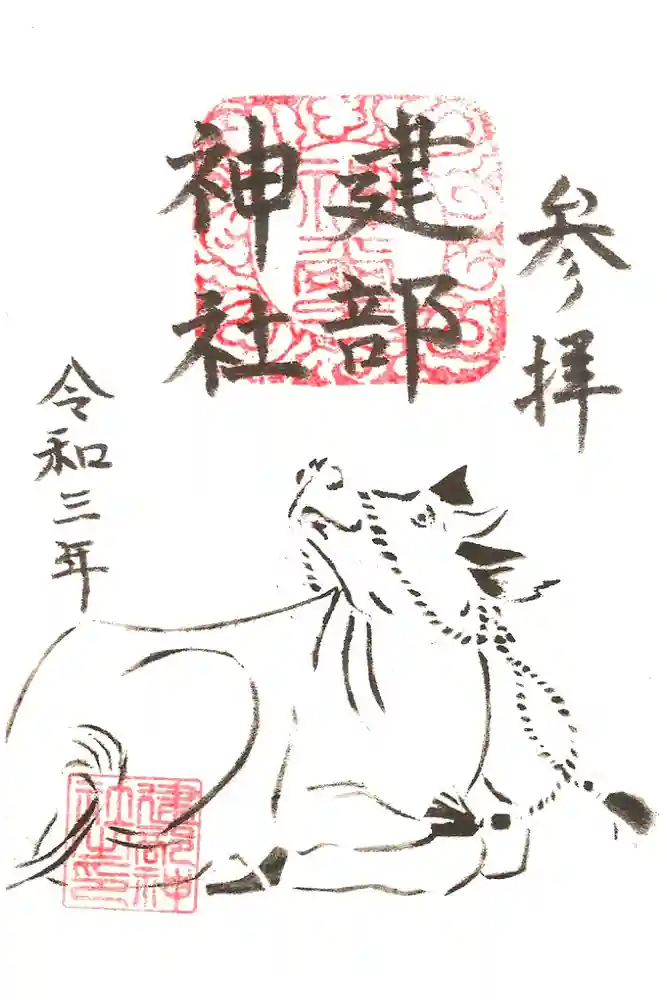 参拝
建部
神社
令和三年
建部神
社之印